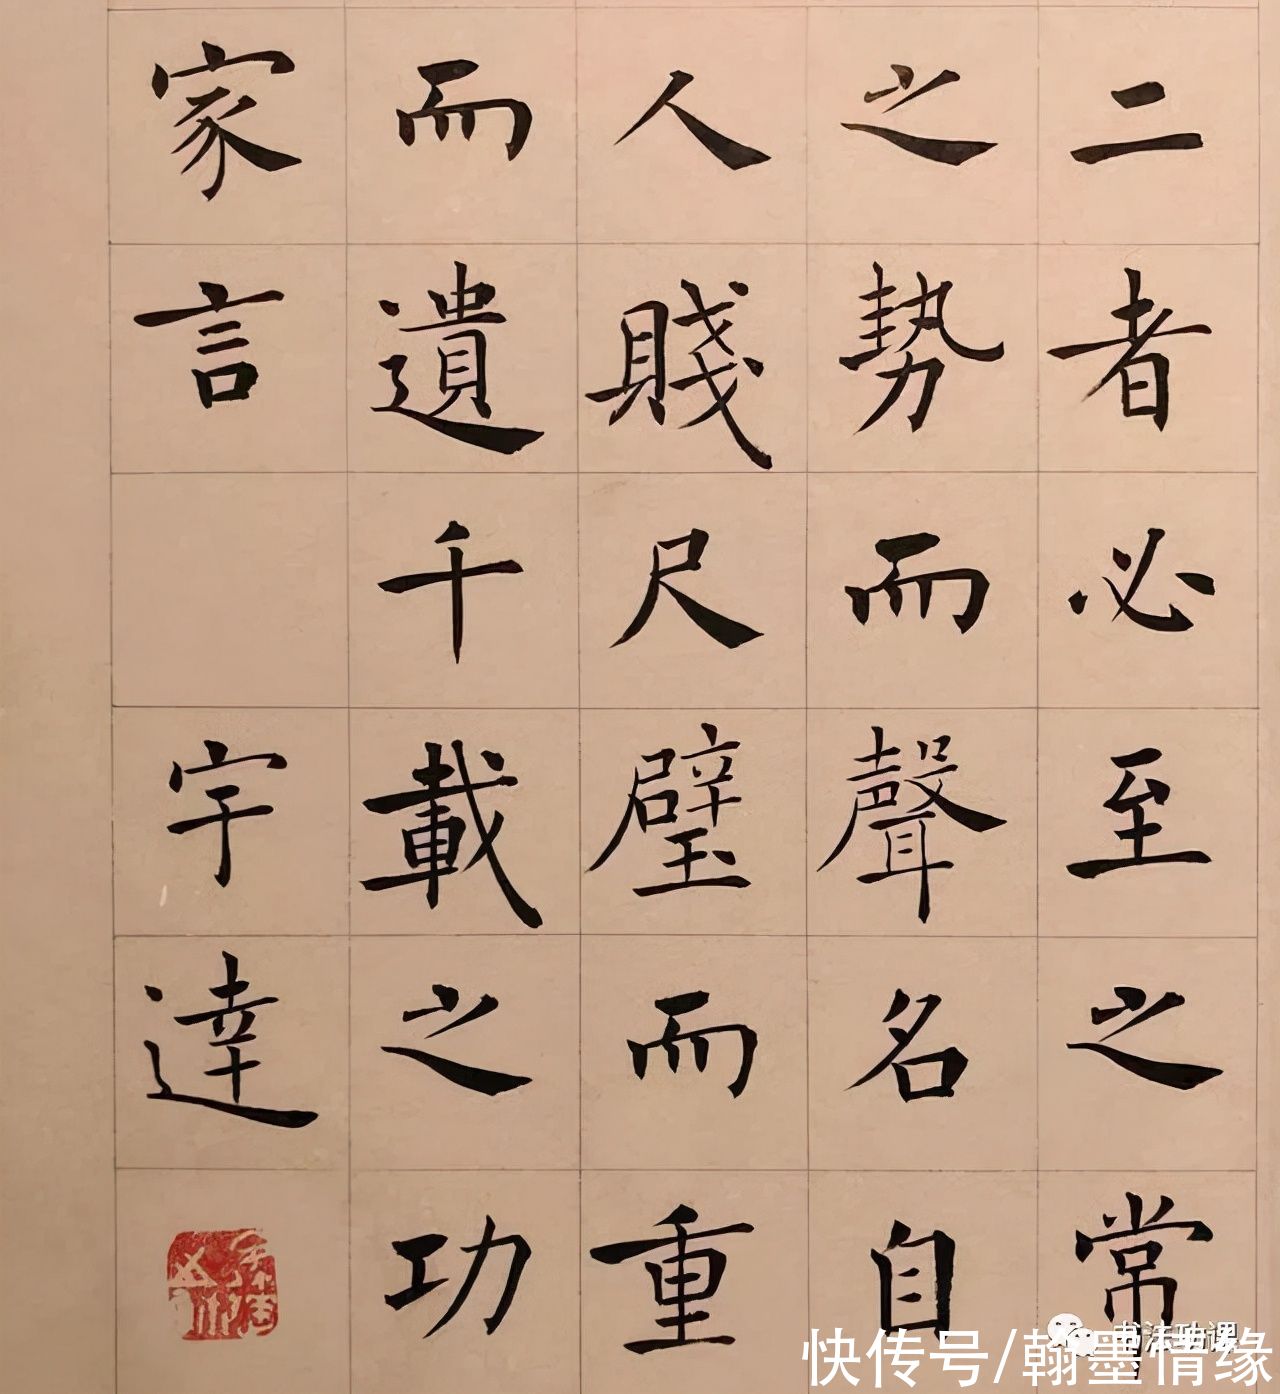 二者必至之常
之勢而聲名自
人賤尺璧而重
而遺千載之功
家言 宇達
书法功课
快传号/翰墨情缘